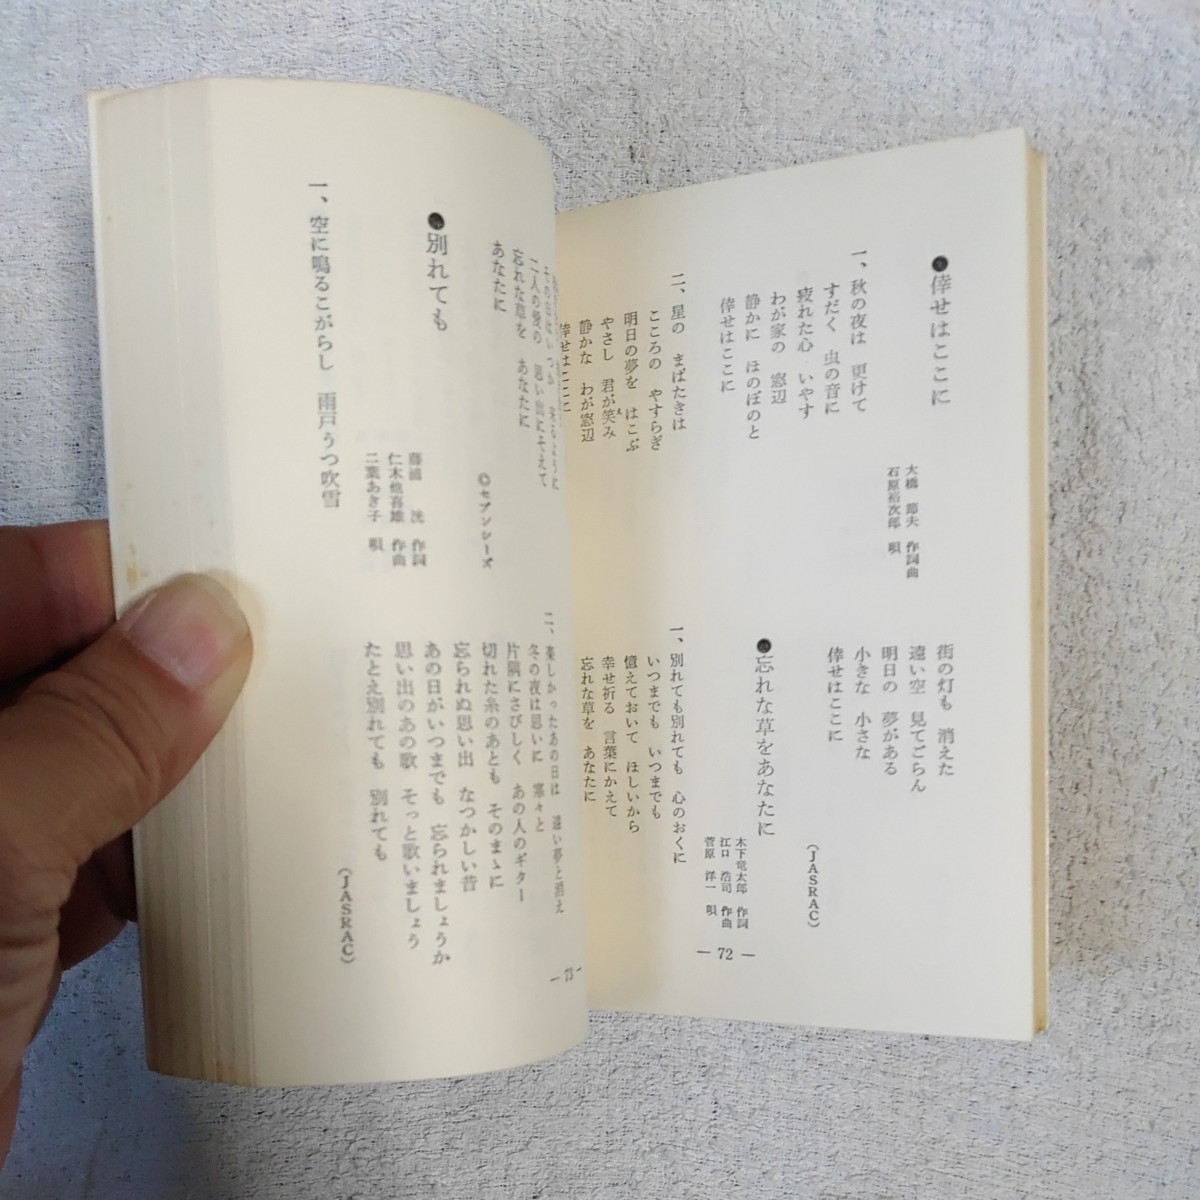 ●倖せはここに
大橋 節夫 作詞曲
石原裕次郎 唄
一、秋の夜は 更けて
すだく 虫の音に
疲れた心 いやす
わが家の 窓辺
静かに ほのぼのと
倖せはここに
二、星の まばたきは
こころの やすらぎ
明日の夢を はこぶ
やさし 君が笑み
静かな わが窓辺
倖せはここに
街の灯も 消えた
遠い空 見てごらん
明日の 夢がある
小さな 小さな
倖せはここに
(JASRAC)
●忘れな草をあなたに
木下竜太郎 作詞
江口 浩司 作曲
菅原 洋一 唄
一、別れても別れても 心のおくに
いつまでも いつまでも
憶えておいて ほしいから
幸せ祈る 言葉にかえて
忘れな草を あなたに
— 72 —
その日はいつか 来るように
二人の愛の 思い出にそえて
忘れな草を あなたに
あなたに
©セブンシーズ
●別れても
藤浦 洸 作詞
仁木他喜雄 作曲
二葉あき子 唄
一、空に鳴るこがらし 雨戸うつ吹雪
二、楽しかったあの日は 遠い夢と消え
冬の夜は思いに 寒々と
片隅にさびしく あの人のギター
切れた糸のあとも そのまゝに
忘られぬ思い出 なつかしい昔
あの日がいつまでも 忘られましょうか
思い出のあの歌 そっと歌いましょう
たとえ別れても 別れても
(JASRAC)
— 73 —